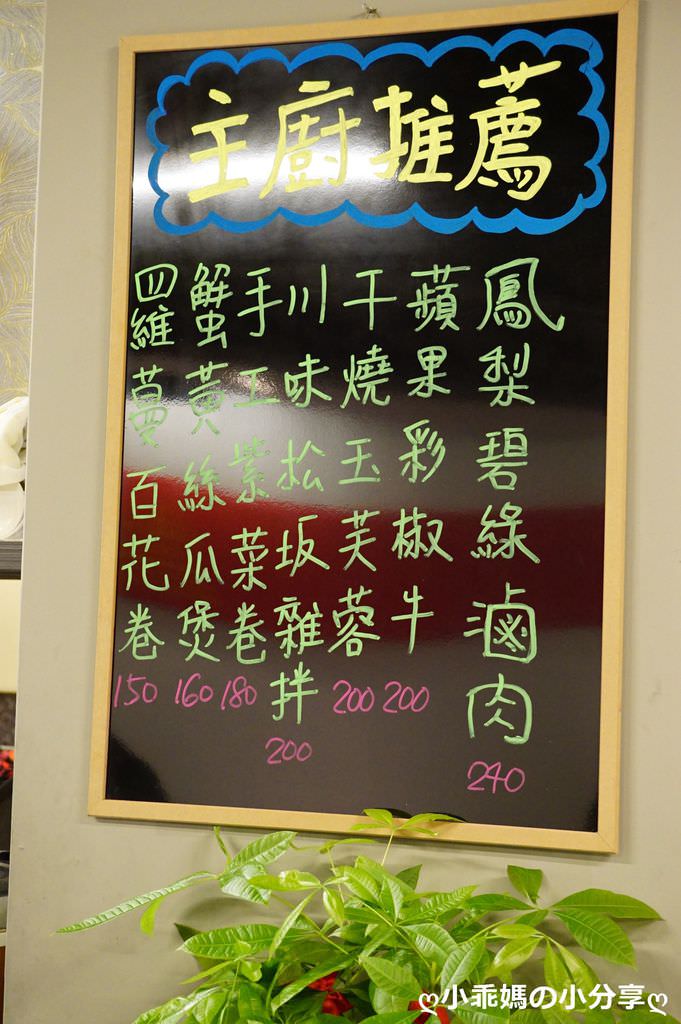 主廚推薦
鳳梨碧綠滷肉
240
蘋果彩椒牛
200
干燒玉芙蓉
200
川味松坂雜拌
200
手工紫菜卷
180
蟹黃絲瓜煲
160
四羅蔓百花卷
150
ღ小乖媽の小分享ღ